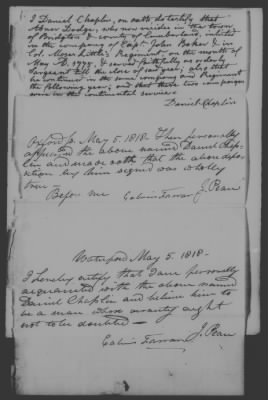 I Daniel Chaplin, on oath do testify that
Abner Dodge, who now resides in the town
of Bridgton & county of Cumberland, inlisted
in the company of Capt John Baker & in
Col. Moses Little's Regiment, on the month of
May AD, 1775, & served faithfully as orderly
Sargeant till the close of said year; also that
he continued in the same company and Regiment
the following year; and that these two companyes
were in the continental service.
Daniel Chaplin
Oxford ss May 5. 1818. Then personally
appeared the above named Daniel Chap-
lin and made oath that the above depo-
sition by him signed was wholly
true
Before me
J. Peace
Waterford May 5. 1818.
I hereby certify that I am personally
acquainted with the above named
Daniel Chaplin and believe him to
be a man whose veracity ought
not to be doubted
J. Peace